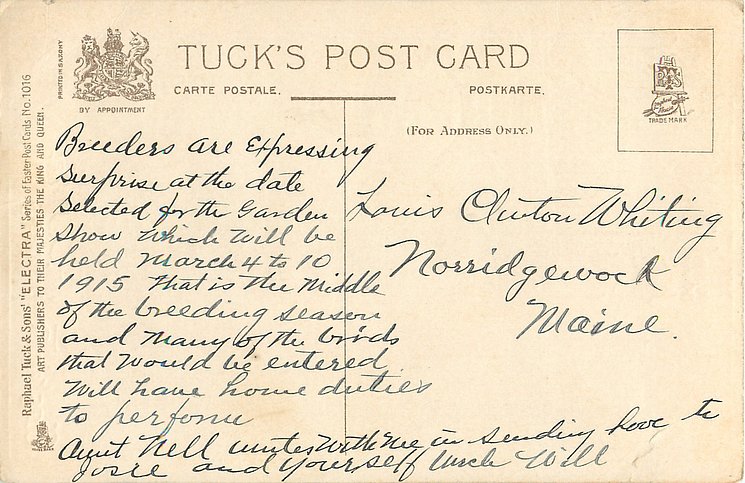 PRINTED IN SAXONY
BY APPOINTMENT
TUCK'S POST CARD
CARTE POSTALE.
POSTKARTE.
(FOR ADDRESS ONLY.)
TRADE MARK
Raphael Tuck & Sons' "ELECTRA" Series of Easter Post Cards No. 1016
ART PUBLISHERS TO THEIR MAJESTIES THE KING AND QUEEN.
Breeders are Expressing
surprise at the date
selected for the Garden
Show which will be
held March 4 to 10
1915 That is the Middle
of the breeding season
and Many of the birds
that would be entered
will have home duties
to perform
Aunt Nell unites with me in sending love to
Josie and yourself Uncle Will
Louis Clinton Whiting
Norridgewock
Maine.